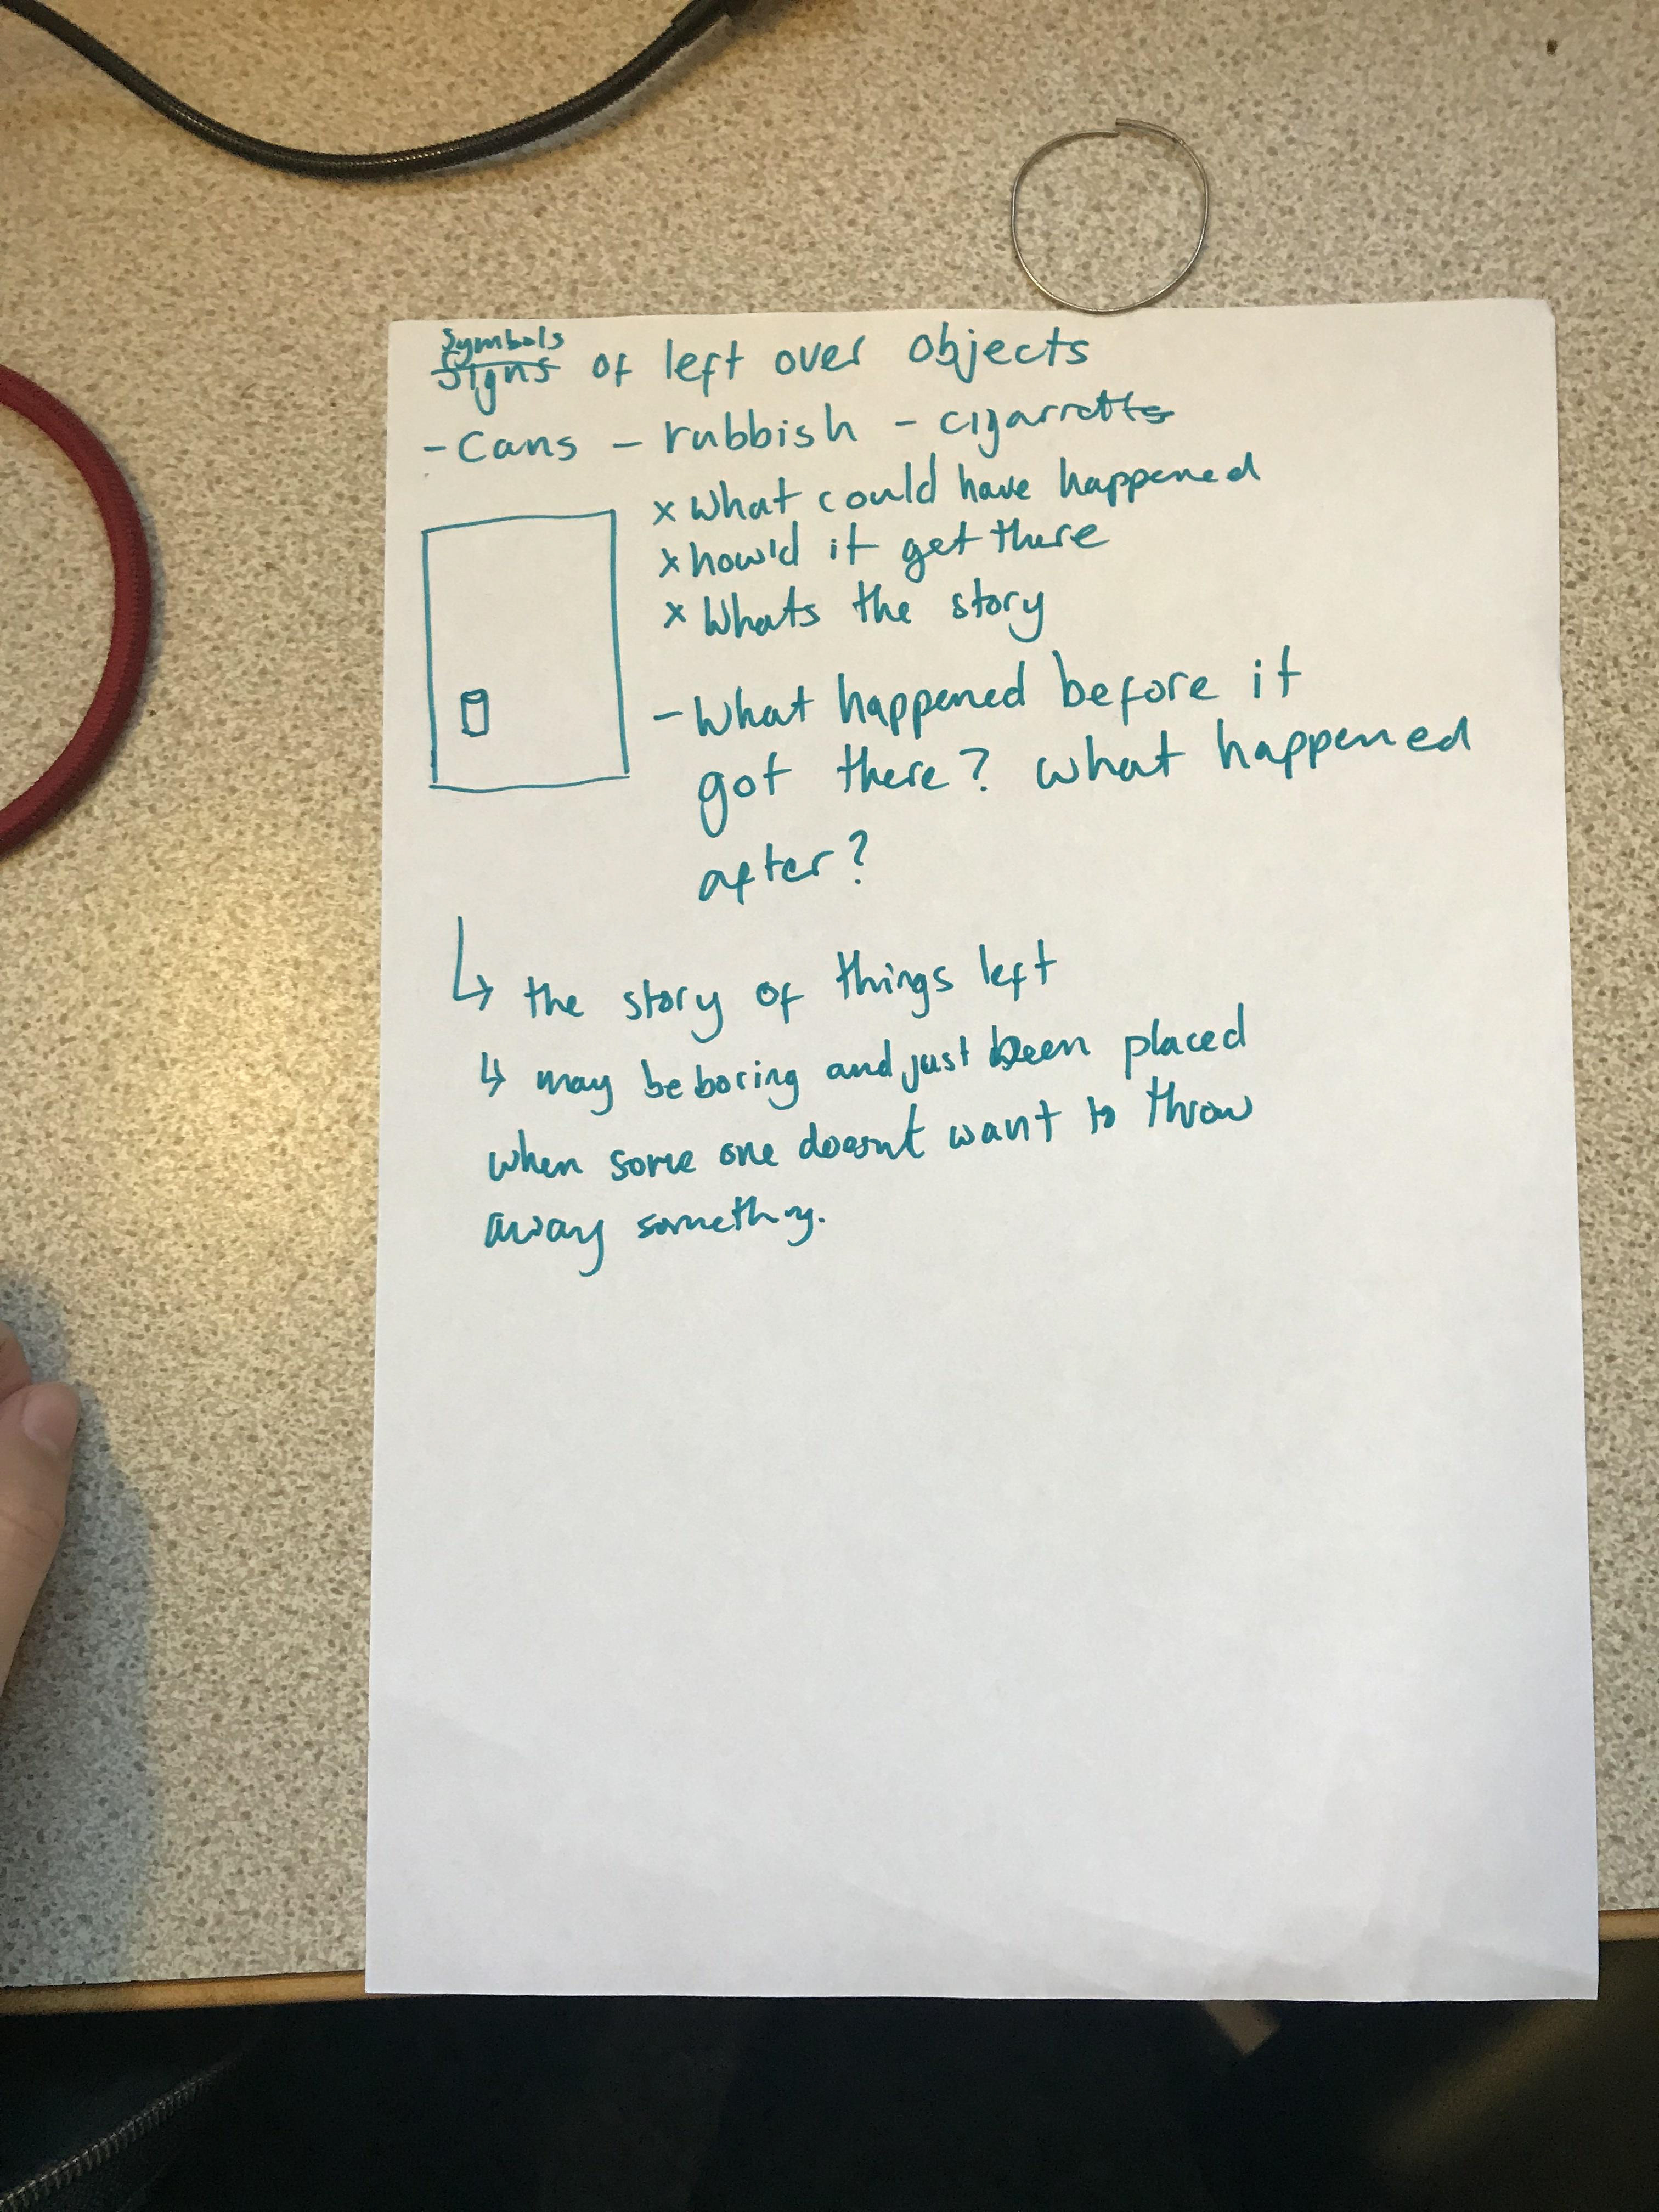 Symbols
Signs of left over objects
- Cans - rubbish - cigarretts
x What could have happened
x how'd it get there
x Whats the story
- What happened before it
got there? what happened
after?
↳ the story of things left
↳ may be boring and just been placed
when some one doesnt want to throw
away something.